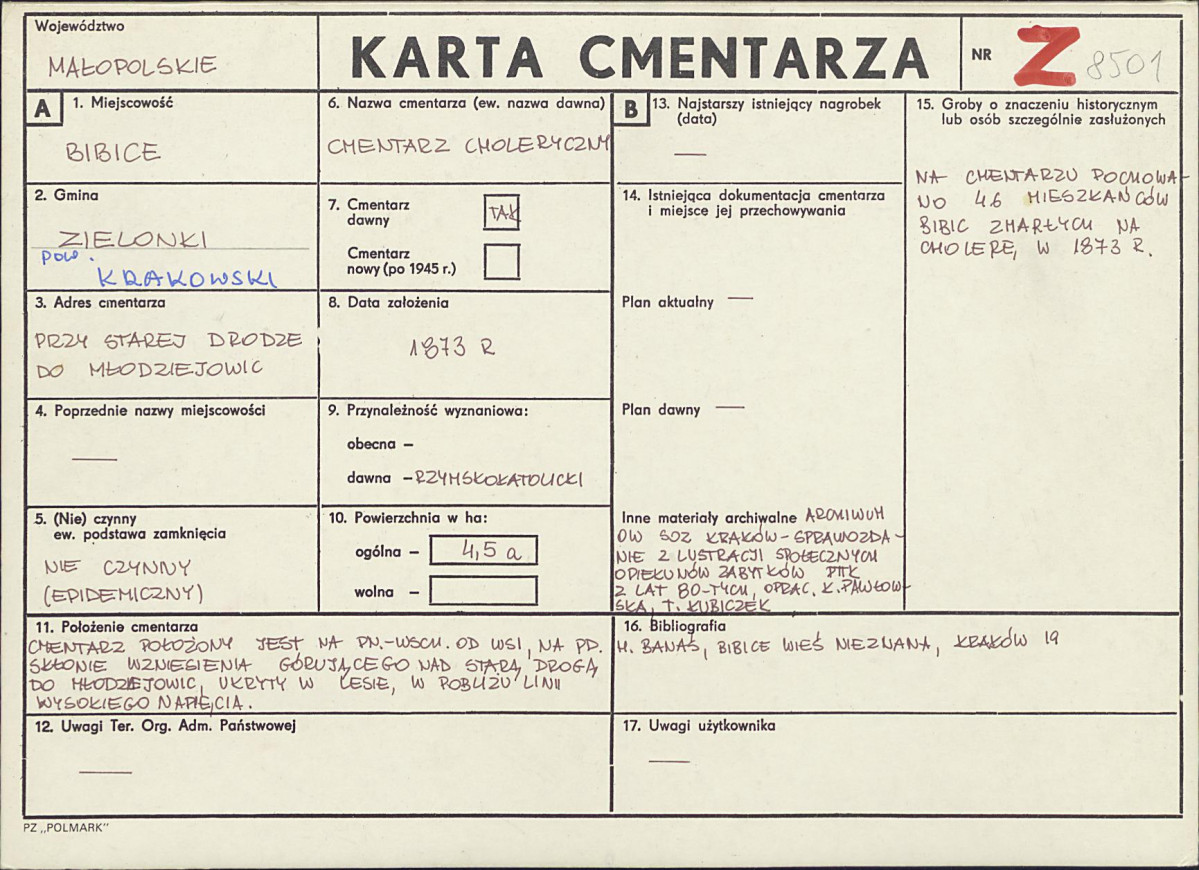 Województwo
MAŁOPOLSKIE
KARTA CMENTARZA
NR Z 8501
A
1. Miejscowość
BIBICE
2. Gmina
ZIELONKI
pow.
KRAKOWSKI
3. Adres cmentarza
PRZY STAREJ DRODZE
DO MŁODZIEJOWIC
4. Poprzednie nazwy miejscowości
—
5. (Nie) czynny
ew. podstawa zamknięcia
NIE CZYNNY
(EPIDEMICZNY)
6. Nazwa cmentarza (ew. nazwa dawna)
CMENTARZ CHOLERYCZNY
7. Cmentarz
dawny
TAK
Cmentarz
nowy (po 1945 r.)
8. Data założenia
1873 R
9. Przynależność wyznaniowa:
obecna –
dawna – RZYMSKOKATOLICKI
10. Powierzchnia w ha:
ogólna – 4,5 a
wolna –
11. Położenie cmentarza
CMENTARZ POŁOŻONY JEST NA PN.-WSCH. OD WSI, NA PD.
SKŁONIE WZNIESIENIA GÓRUJĄCEGO NAD STARĄ DROGĄ
DO MŁODZIEJOWIC, UKRYTY W LESIE, W POBLIŻU LINII
WYSOKIEGO NAPIĘCIA.
12. Uwagi Ter. Org. Adm. Państwowej
—
B
13. Najstarszy istniejący nagrobek
(data)
—
14. Istniejąca dokumentacja cmentarza
i miejsce jej przechowywania
Plan aktualny —
Plan dawny —
Inne materiały archiwalne ARCHIWUM
OW SOZ KRAKÓW - SPRAWOZDA-
NIE Z LUSTRACJI SPOŁECZNYCH
OPIEKUNÓW ZABYTKÓW PTTK
Z LAT 80-TYCH, OPRAC. K. PAWŁOW-
SKA, T. KUBICZEK
15. Groby o znaczeniu historycznym
lub osób szczególnie zasłużonych
NA CMENTARZU POCHOWA-
NO 46 MIESZKAŃCÓW
BIBIC ZMARŁYCH NA
CHOLERĘ, W 1873 R.
16. Bibliografia
H. BANAŚ, BIBICE WIEŚ NIEZNANA, KRAKÓW 19
17. Uwagi użytkownika
—
PZ „POLMARK"